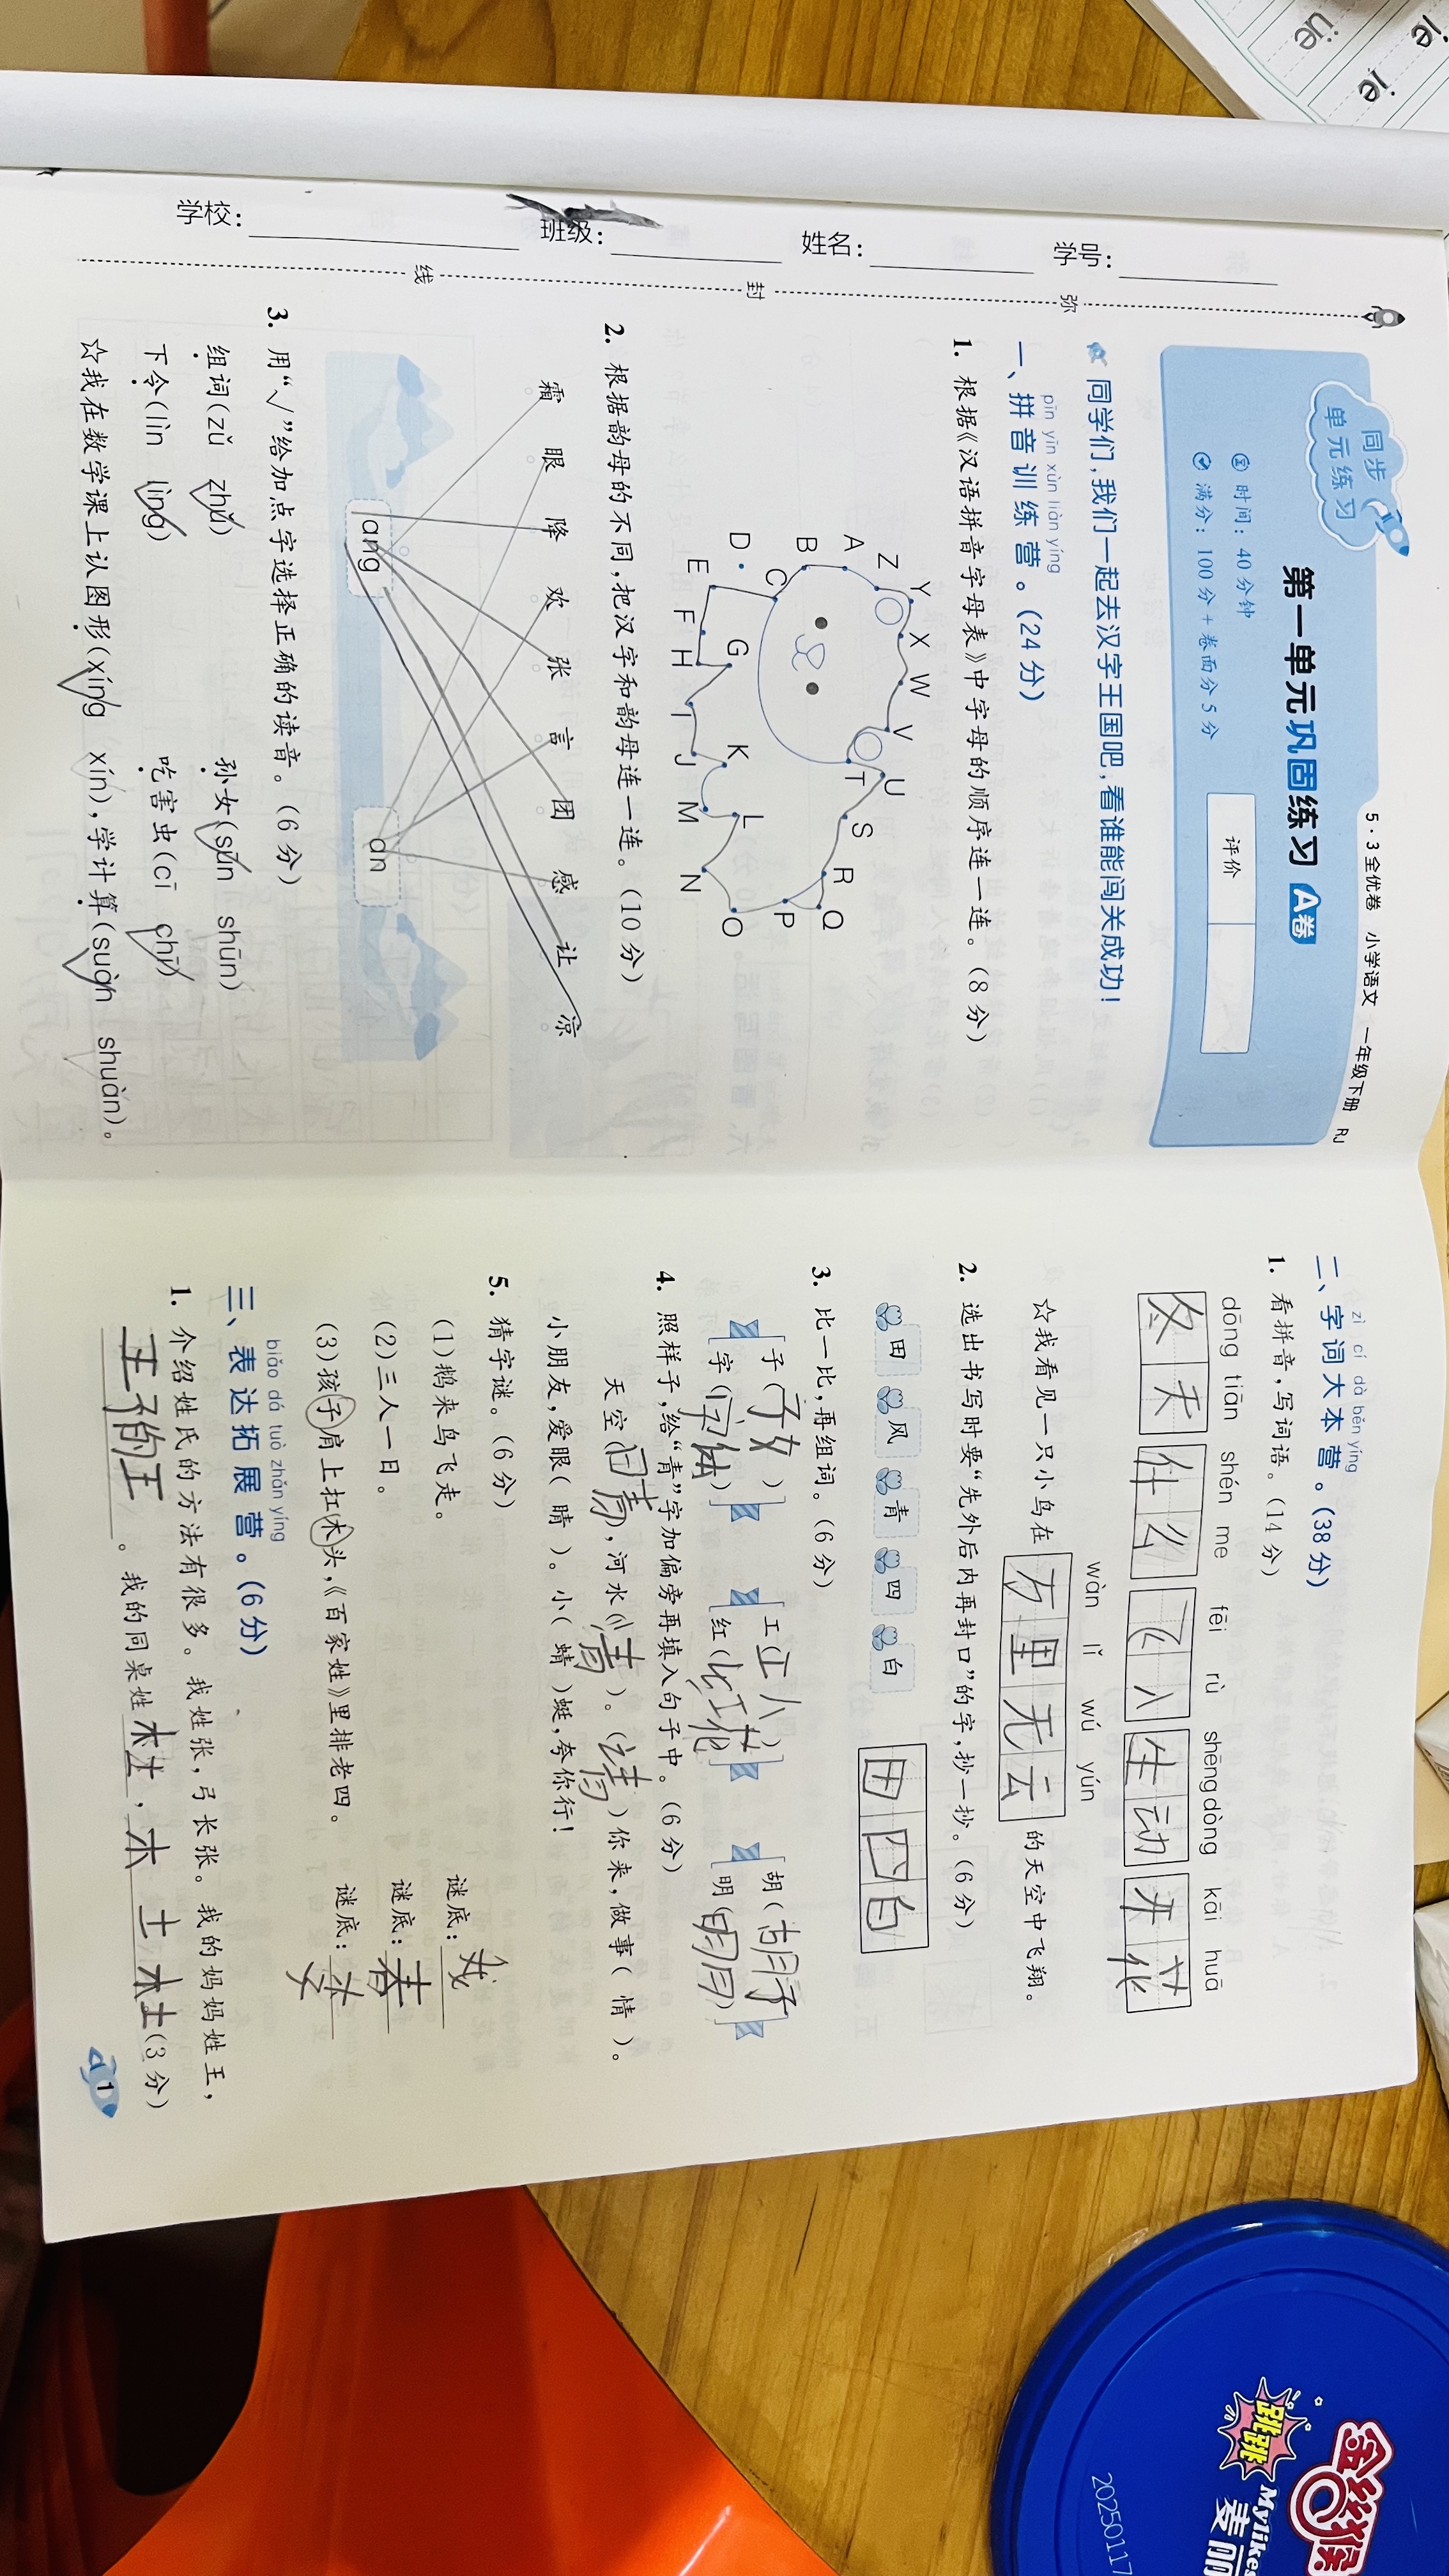 üe
ie
ie
学校： 班级： 姓名： 学号：
线 封 弥
5·3全优卷 小学语文 一年级下册 RJ
同步
单元练习
第一单元巩固练习 A卷
时间：40分钟
满分：100分+卷面分5分
评价
同学们，我们一起去汉字王国吧，看谁能闯关成功！
pīn yīn xùn liàn yíng
一、拼音训练营。（24分）
1. 根据《汉语拼音字母表》中字母的顺序连一连。（8分）
A B C D E F G H I J K L M N O P Q R S T U V W X Y Z
2. 根据韵母的不同，把汉字和韵母连一连。（10分）
霜 眼 降 欢 张 言 团 感 让 凉
ang an
3. 用“√”给加点字选择正确的读音。（6分）
组词（zǔ zhǔ） 孙女（sūn shūn）
下令（lìn lìng） 吃害虫（cī chī）
☆我在数学课上认图形（xíng xín），学计算（suàn shuàn）。
zì cí dà běn yíng
二、字词大本营。（38分）
1. 看拼音，写词语。（14分）
dōng tiān shén me fēi rù shēng dòng kāi huā
冬天 什么 飞入 生动 开花
wàn lǐ wú yún
☆我看见一只小鸟在 万里无云 的天空中飞翔。
2. 选出书写时要“先外后内再封口”的字，抄一抄。（6分）
田 风 青 四 白
田 四 白
3. 比一比，再组词。（6分）
子（子女） 工（工人） 胡（胡子）
字（字体） 红（红花） 明（明月）
4. 照样子，给“青”字加偏旁再填入句子中。（6分）
天空（晴），河水（清）。（请）你来，做事（情）。
小朋友，爱眼（睛）。小（蜻）蜓，夸你行！
5. 猜字谜。（6分）
（1）鹅来鸟飞走。 谜底：我
（2）三人一日。 谜底：春
（3）孩子肩上扛木头，《百家姓》里排老四。 谜底：
biǎo dá tuò zhǎn yíng
三、表达拓展营。（6分）
1. 介绍姓氏的方法有很多。我姓张，弓长张。我的妈妈姓王，
王子的王。我的同桌姓杜，木土杜（3分）
1
金丝猴
跳跳
Mylikes
麦丽
20250117